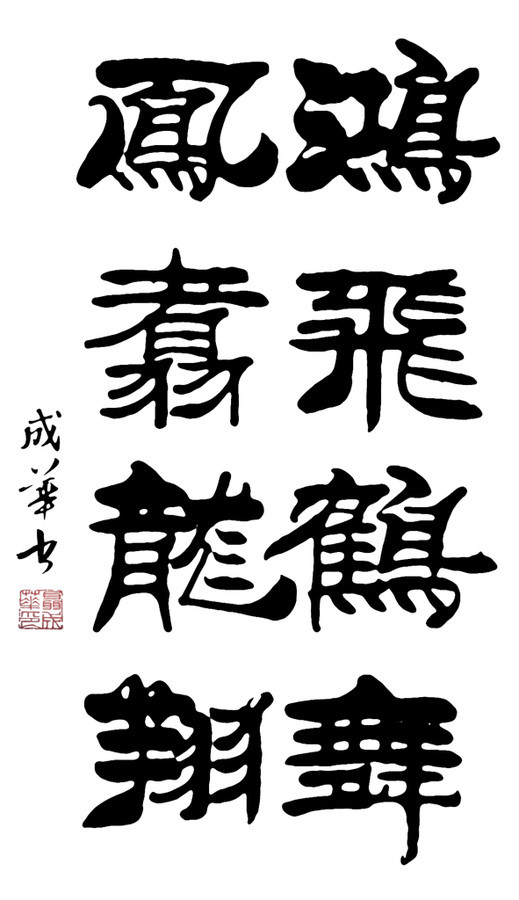 鴻飛鶴舞
鳳翥龍翔
成華书